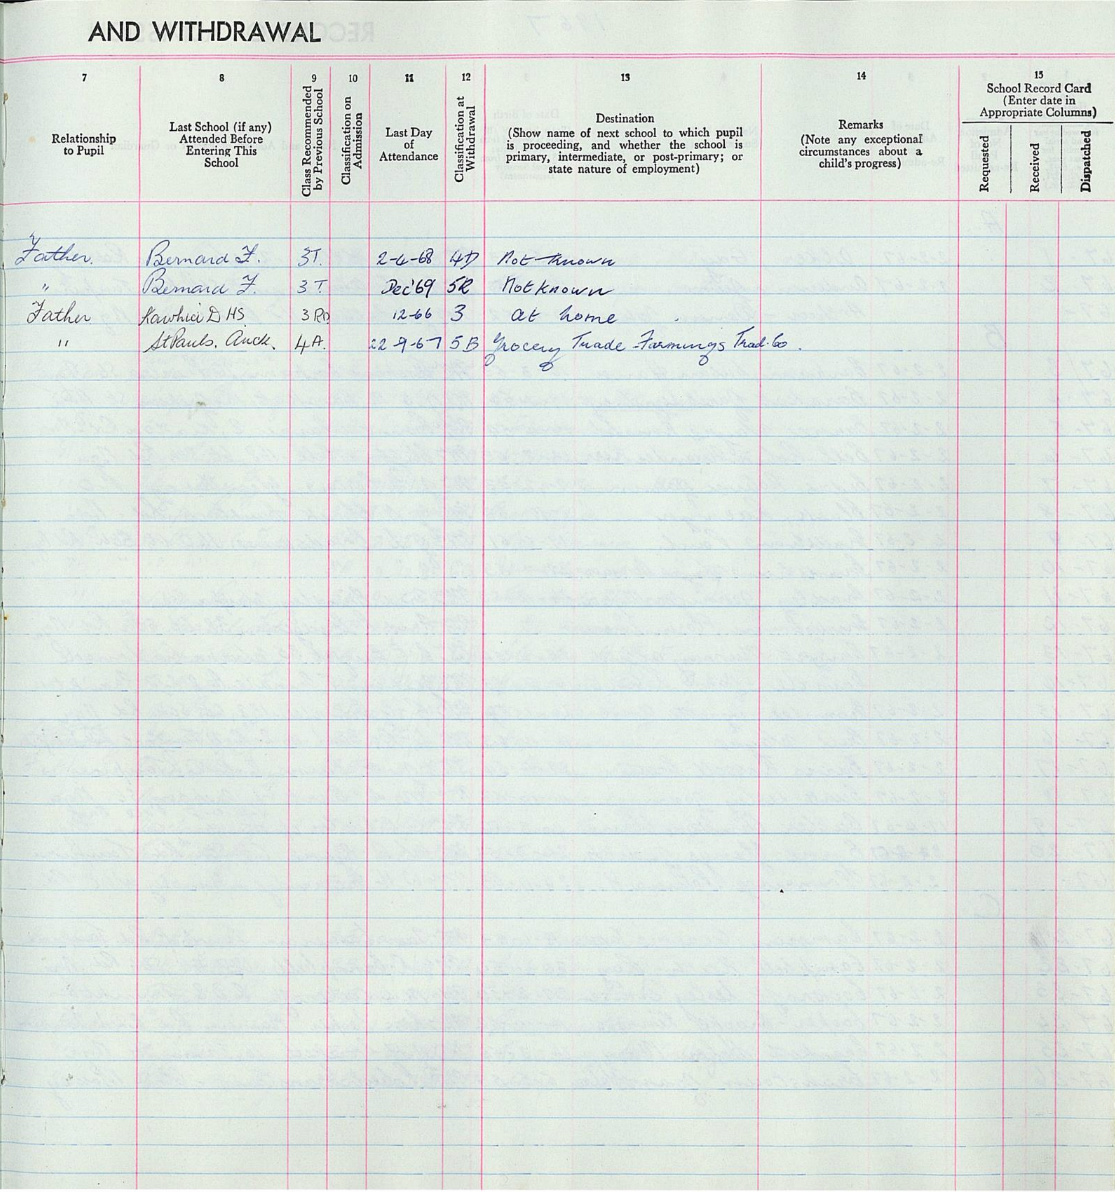 AND WITHDRAWAL
7 8 9 10 11 12 13 14 15
Relationship to Pupil
Last School (if any) Attended Before Entering This School
Class Recommended by Previous School
Classification on Admission
Last Day of Attendance
Classification at Withdrawal
Destination
(Show name of next school to which pupil
is proceeding, and whether the school is
primary, intermediate, or post-primary; or
state nature of employment)
Remarks
(Note any exceptional
circumstances about a
child's progress)
School Record Card
(Enter date in
Appropriate Columns)
Requested
Received
Dispatched
Father. Bernard F. 3T. 2-4-68 4D Not known
" Bernard F. 3T. Dec'69 5R Not known
Father Kawhia D HS 12-66 3 at home
" St Pauls. Auck. 4A. 22-9-67 5B Grocery Trade Farmings Trad. Co.